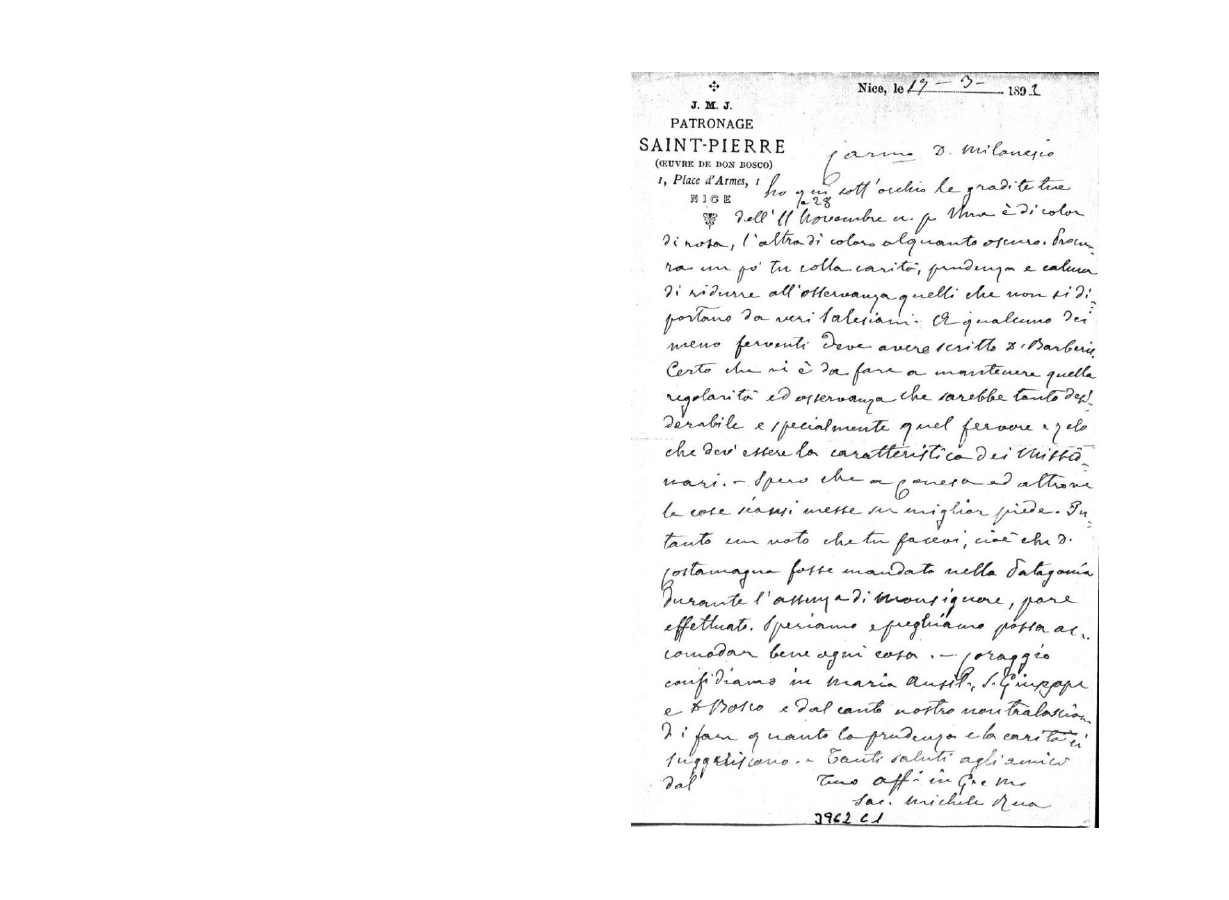 Nice, le 19 - 3 - 1891
J. M. J.
PATRONAGE
SAINT-PIERRE
(ŒUVRE DE DON BOSCO)
1, Place d'Armes, 1
NICE
Carmo D. Milanesio
ho qui sott'occhio le gradite tue
e 28
dell'11 Novembre u. p. Una è di color
di rosa, l'altra di colore alquanto oscuro. Procu-
ra un po' tu colla carità, prudenza e calma
di ridurre all'osservanza quelli che non si di-
portano da veri Salesiani. A qualcuno dei
meno ferventi deve avere scritto D. Barberis.
Certo che vi è da fare a mantenere quella
regolarità ed osservanza che sarebbe tanto desi-
derabile e specialmente quel fervore e zelo
che dev'essere la caratteristica dei Missio-
nari. - Spero che a Conesa ed altrove
le cose siansi messe su miglior piede. In-
tanto un voto che tu facevi, cioè che D.
Costamagna fosse mandato nella Patagonia
durante l'assenza di Monsignore, pare
effettuato. Speriamo e preghiamo possa ac-
comodar bene ogni cosa. - Coraggio
confidiamo in Maria Ausil., S. Giuseppe
e D. Bosco e dal canto nostro non tralasciamo
di fare quanto la prudenza e la carità ci
suggeriscono. - Tanti saluti agli amici
dal Tuo aff. in G. e M.
Sac. Michele Rua
3962 C1